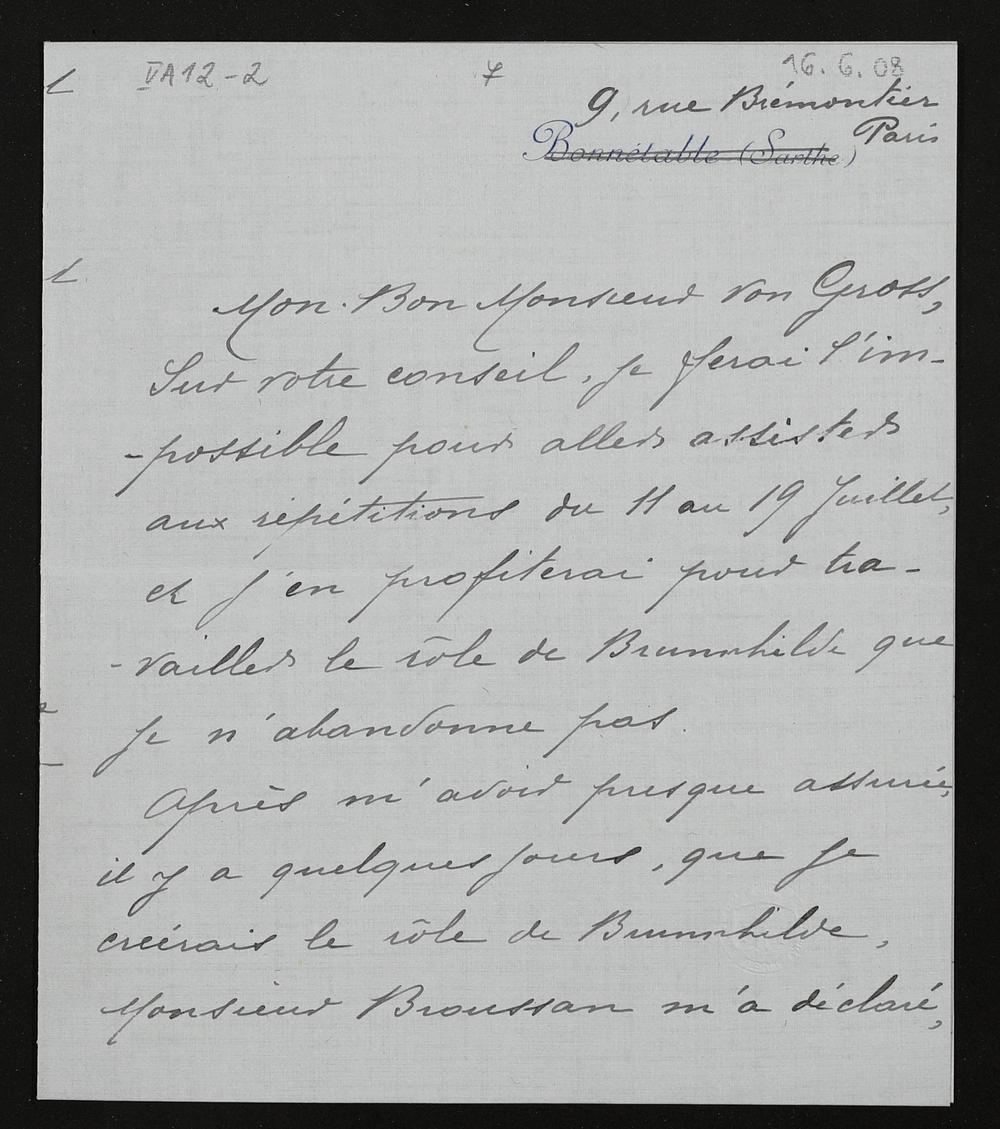 VA12-2 7 16.6.08
9, rue Brémontier
Paris
Bonnétable (Sarthe)
Mon Bon Monsieur von Gross,
Sur votre conseil, je ferai l'im-
-possible pour aller assister
aux répétitions du 11 au 19 Juillet,
et j'en profiterai pour tra-
-vailler le rôle de Brunnhilde que
je n'abandonne pas.
Après m'avoir presque assurée,
il y a quelques jours, que je
créerais le rôle de Brunnhilde,
Monsieur Broussan m'a déclaré,